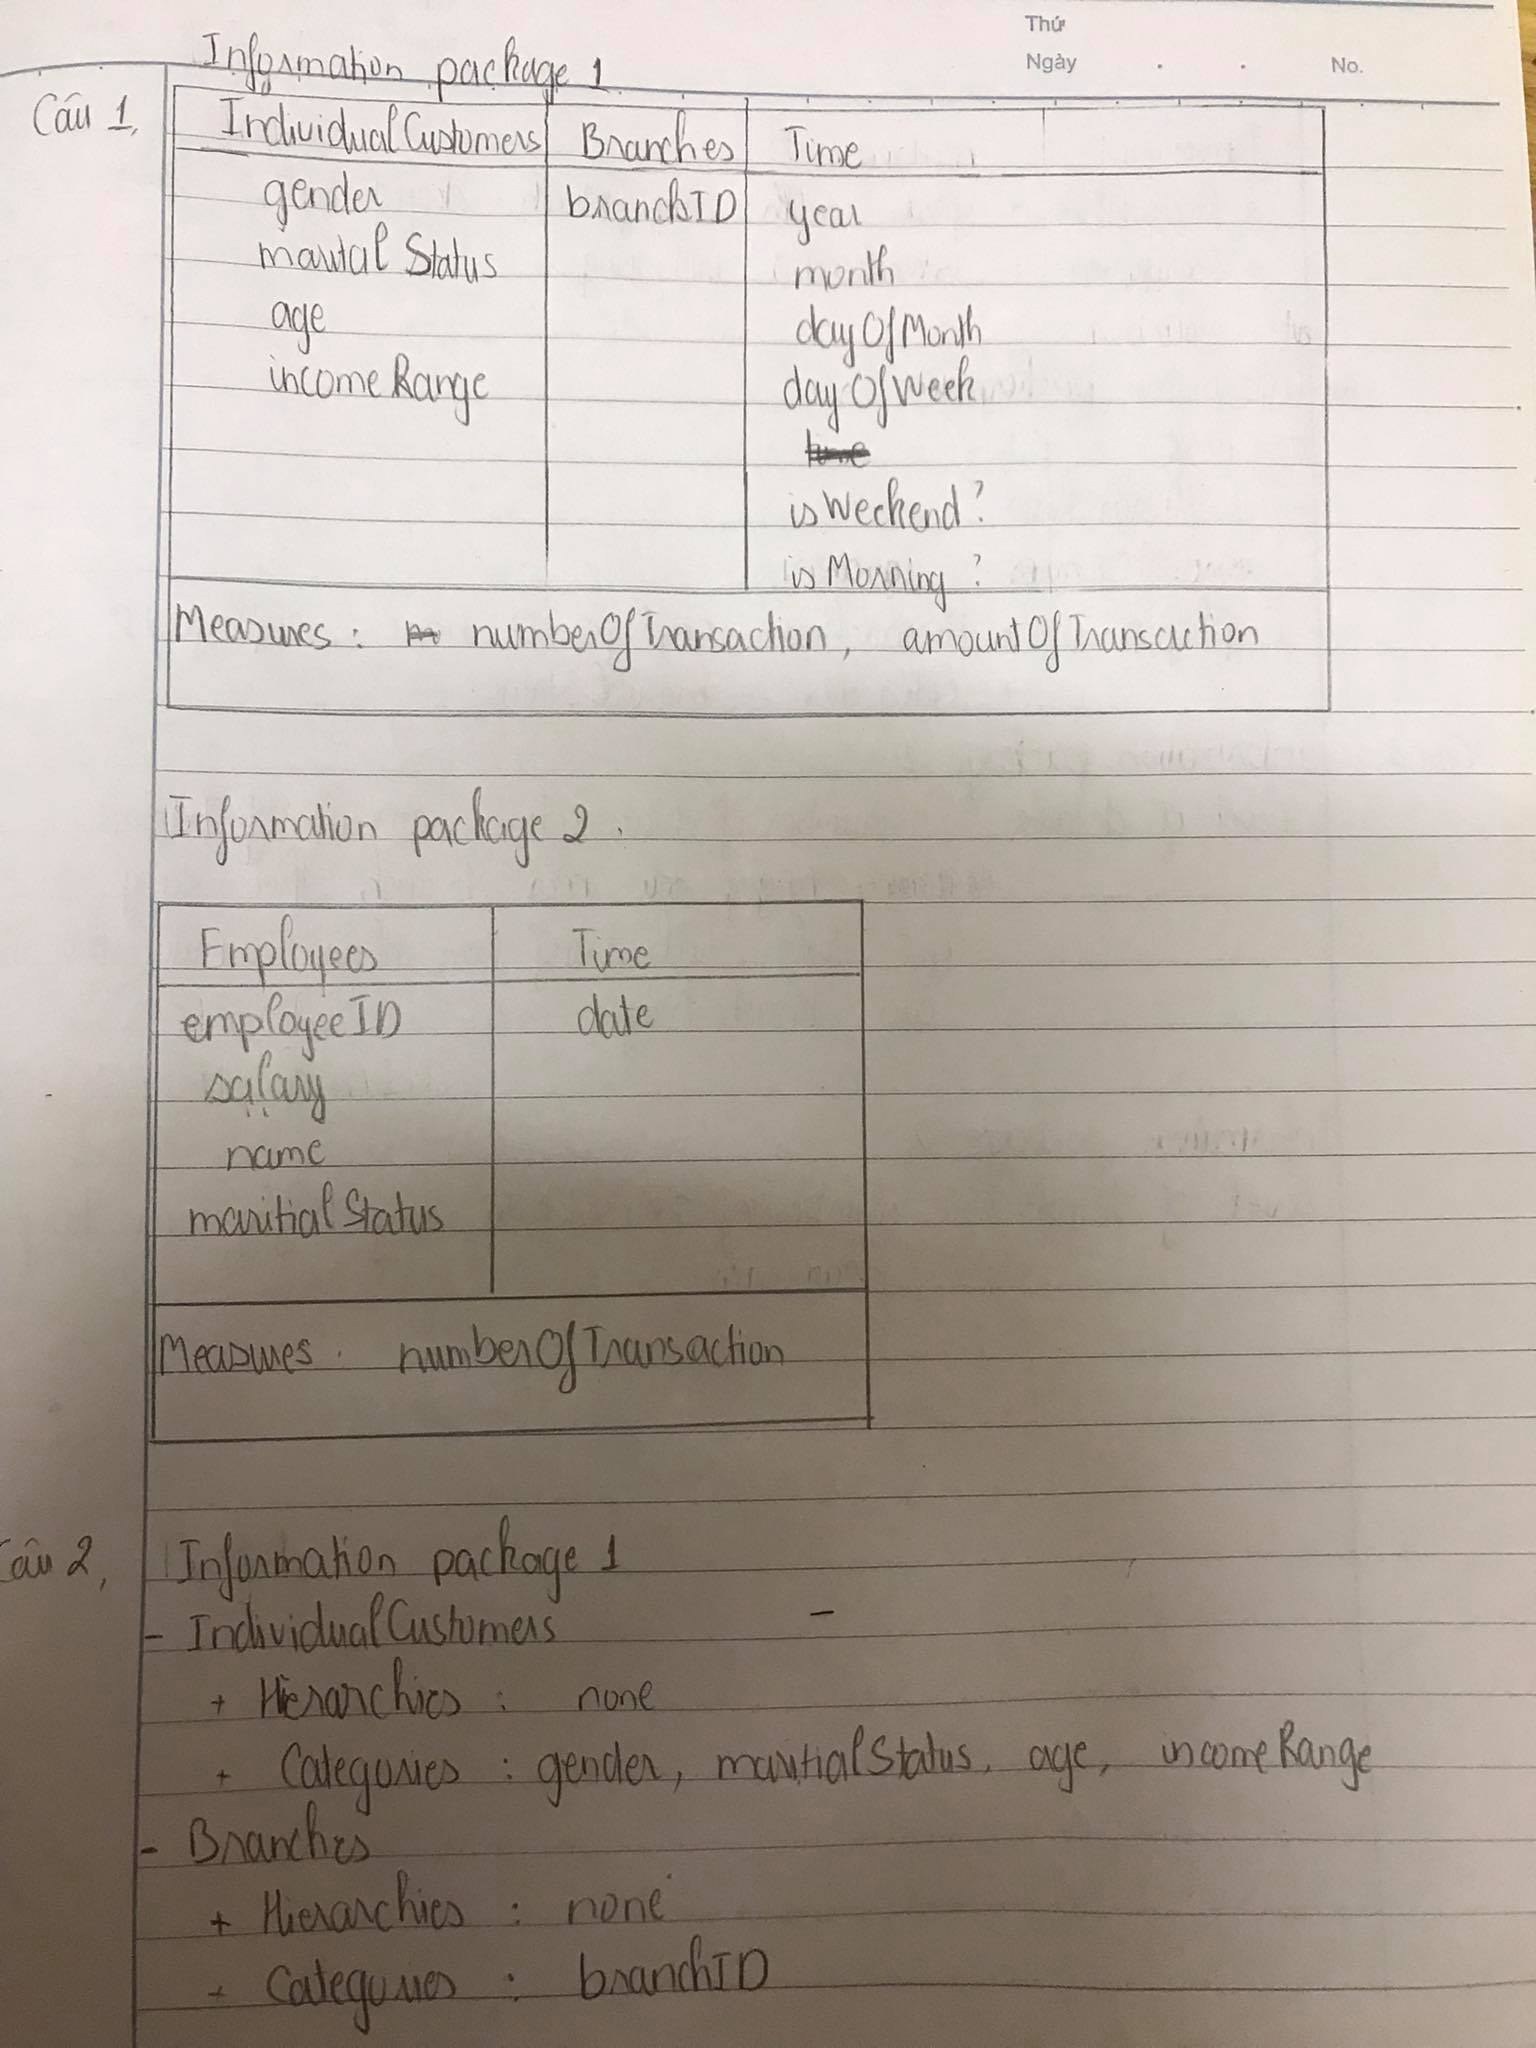 Thứ
Ngày . . No.
Information package 1
Câu 1,
IndividualCustomers Branches Time
gender branchID year
marital Status month
age dayOfMonth
incomeRange dayOfWeek
isWeekend?
isMorning?
Measures: numberOfTransaction, amountOfTransaction
Information package 2.
Employees Time
employeeID date
salary
name
maritialStatus
Measures. numberOfTransaction
Câu 2, Information package 1
- IndividualCustomers -
+ Hierarchies : none
+ Categories : gender, maritialStatus, age, incomeRange
- Branches
+ Hierarchies : none
+ Categories : branchID